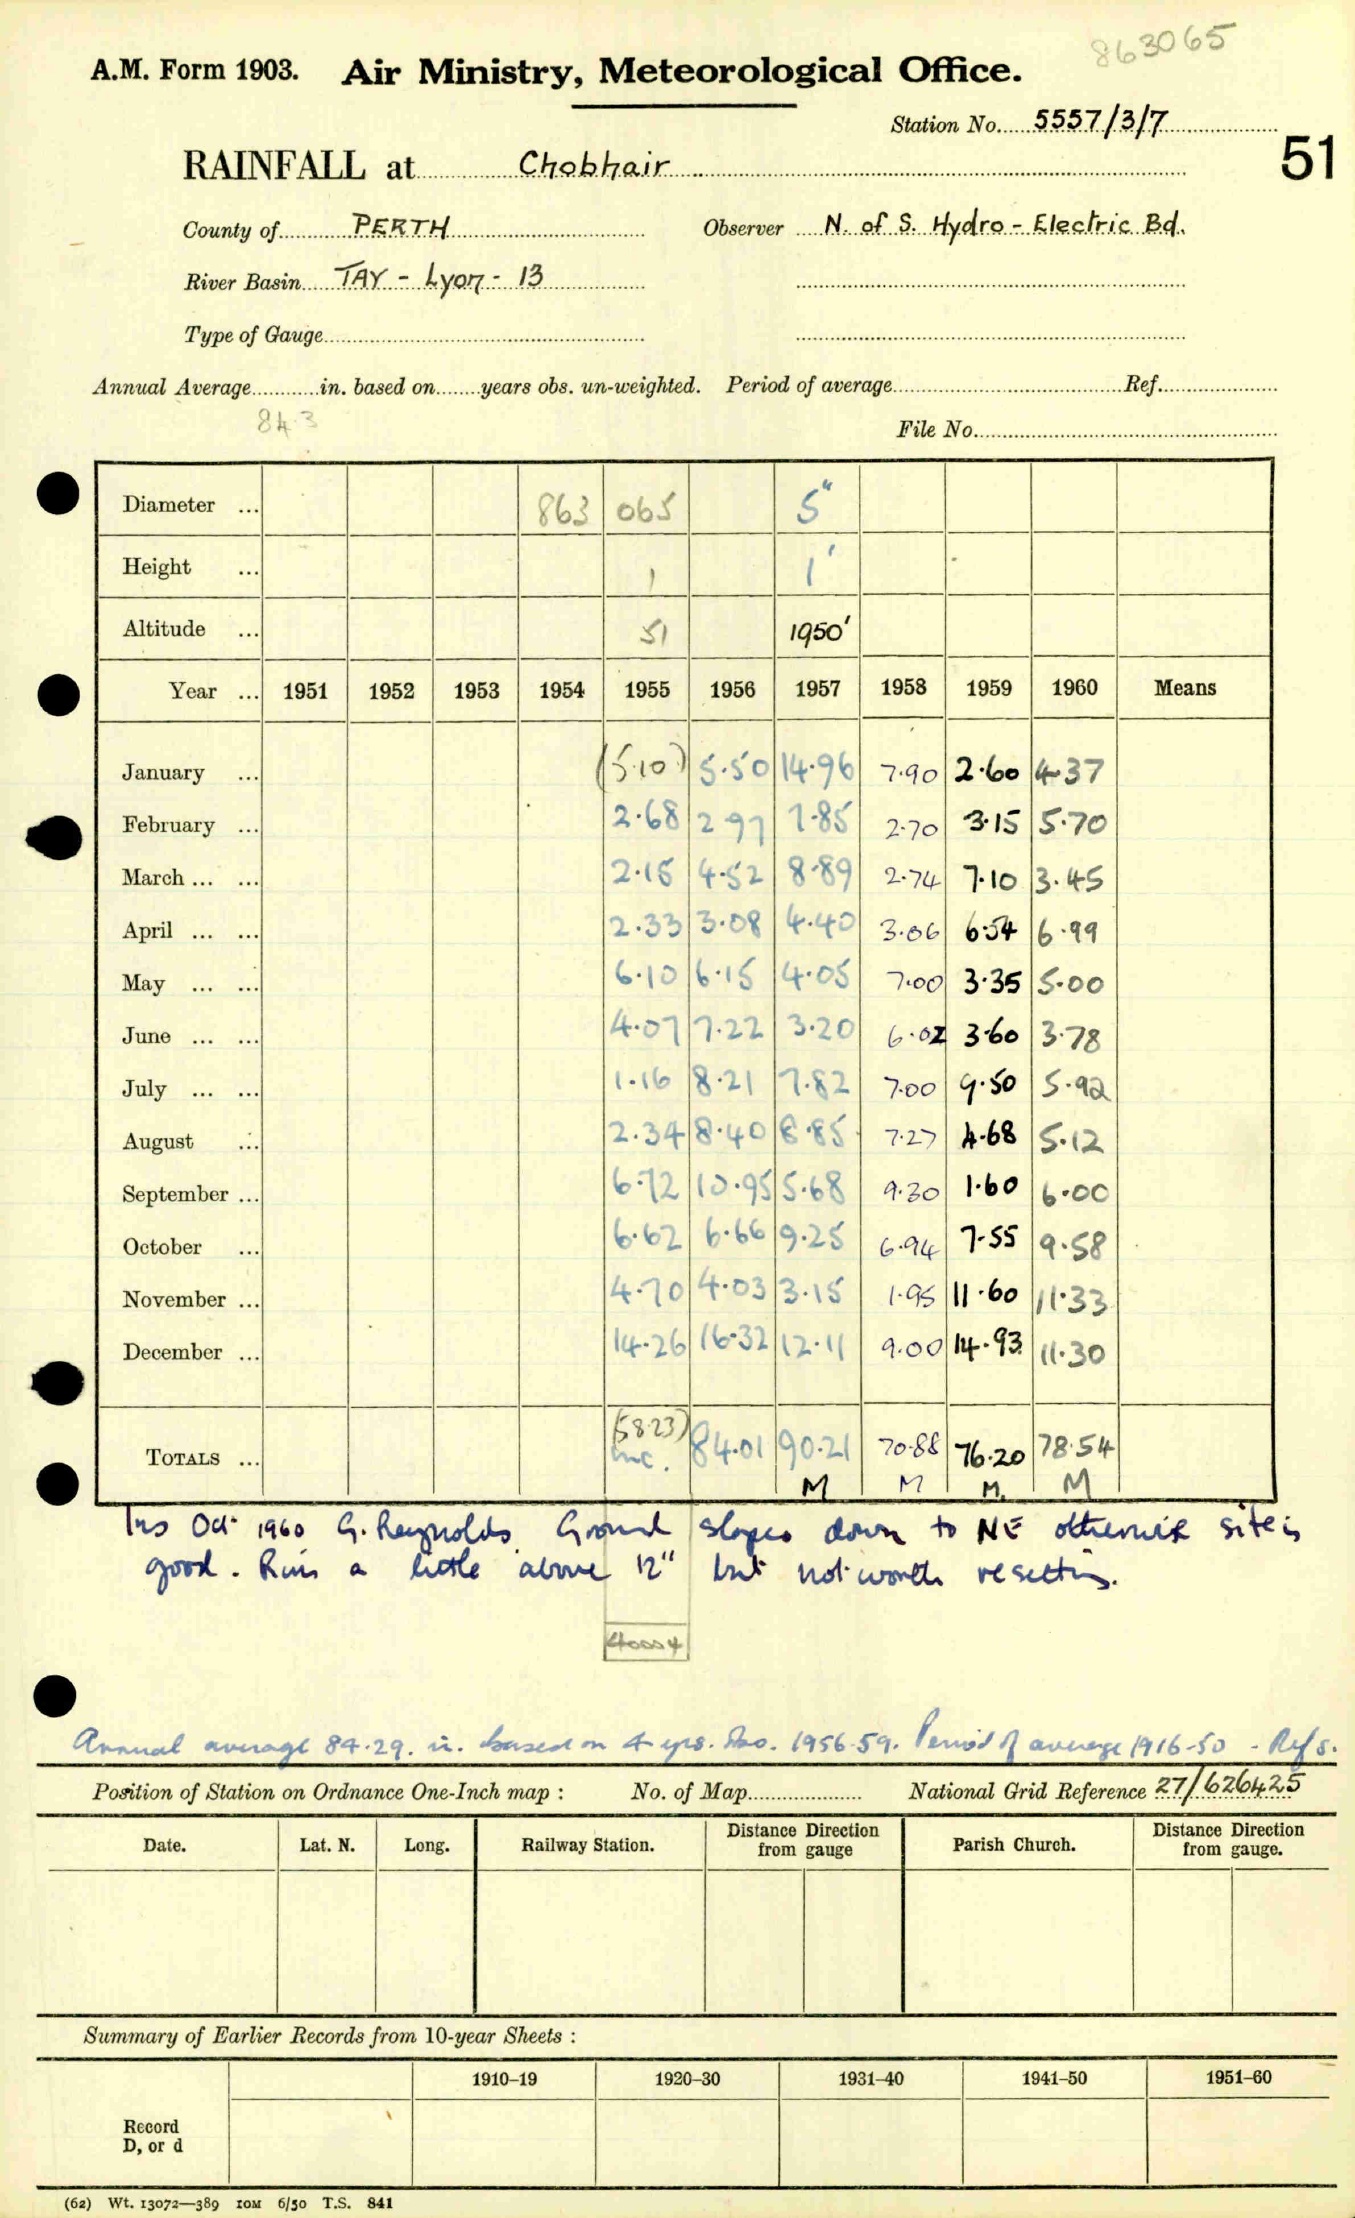 863065
A.M. Form 1903. Air Ministry, Meteorological Office.
Station No. 5557/3/7
51
RAINFALL at Chobhair
County of PERTH Observer N. of S. Hydro-Electric Bd.
River Basin TAY - Lyon - 13
Type of Gauge
Annual Average in. based on years obs. un-weighted. Period of average Ref.
84.3
File No.
Diameter ... 863 065 5"
Height ... 1 1'
Altitude ... 51 1950'
Year ... 1951 1952 1953 1954 1955 1956 1957 1958 1959 1960 Means
January ... (5.10) 5.50 14.96 7.90 2.60 4.37
February ... 2.68 2.97 7.85 2.70 3.15 5.70
March ... ... 2.15 4.52 8.89 2.74 7.10 3.45
April ... ... 2.33 3.08 4.40 3.06 6.54 6.99
May ... ... 6.10 6.15 4.05 7.00 3.35 5.00
June ... ... 4.07 7.22 3.20 6.02 3.60 3.78
July ... ... 1.16 8.21 7.82 7.00 9.50 5.92
August ... 2.34 8.40 8.85 7.27 4.68 5.12
September ... 6.72 10.95 5.68 9.30 1.60 6.00
October ... 6.62 6.66 9.25 6.94 7.55 9.58
November ... 4.70 4.03 3.15 1.95 11.60 11.33
December ... 14.26 16.32 12.11 9.00 14.93 11.30
(58.23)
TOTALS ... inc. 84.01 90.21 70.88 76.20 78.54
M M M. M
Ins Oct 1960 G. Reynolds Ground slopes down to NE otherwise site is
good. Rim a little above 12" but not worth resetting.
40004
Annual average 84.29. in. based on 4 yrs. obs. 1956-59. Period of average 1916-50 - Ref s.
Position of Station on Ordnance One-Inch map : No. of Map National Grid Reference 27/626425
Date. Lat. N. Long. Railway Station. Distance from Direction gauge Parish Church. Distance from Direction gauge.
Summary of Earlier Records from 10-year Sheets :
1910–19 1920–30 1931–40 1941–50 1951–60
Record
D, or d
(62) Wt. 13072—389 10M 6/50 T.S. 841